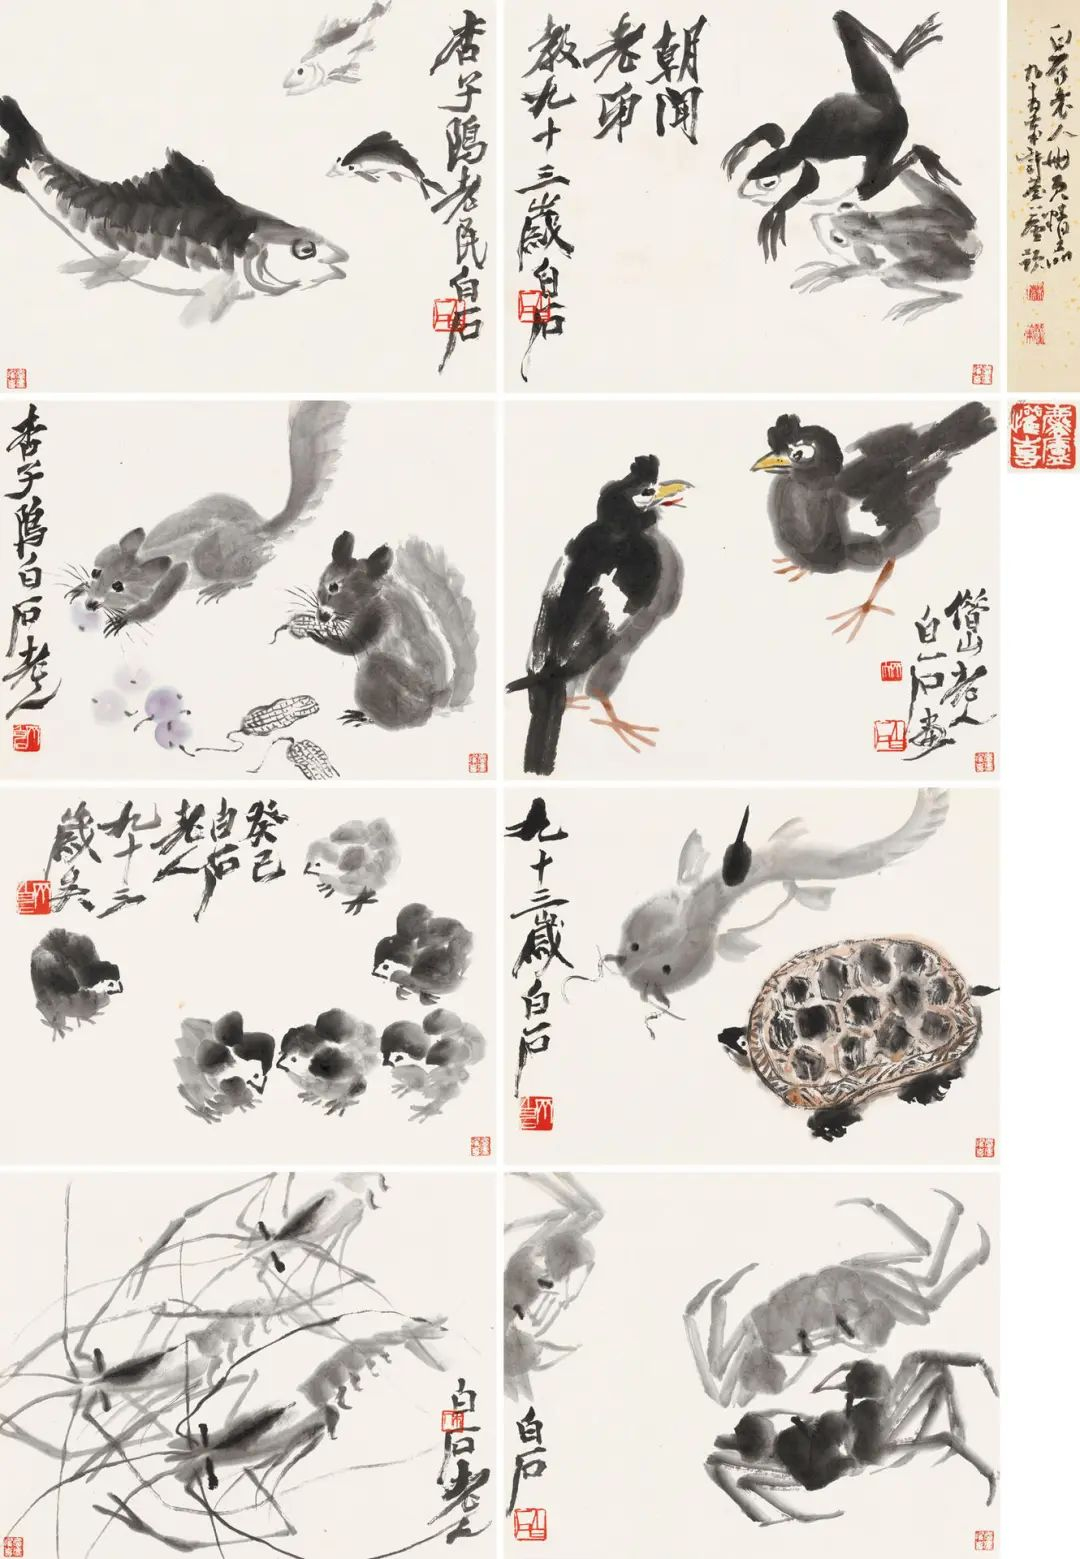 杏子隖老民白石
朝聞
老弟
教九十三歲白石
白石老人册頁精品
九十五叟許麐廬題
杏子隖白石老人
借山老人
白石畫
癸巳
白石
老人
九十三
歲矣
九十三歲白石
白石老人
白石